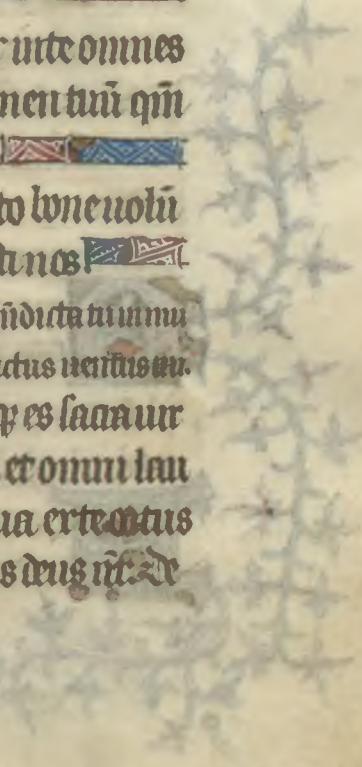 iurte omnes
men tuū qm̄
to bone uolū
ti nos
n̄dicta tu in mu
ctus uentris tui.
es sacra uir
et omni lau
exte ortus
s deus nr̄. De